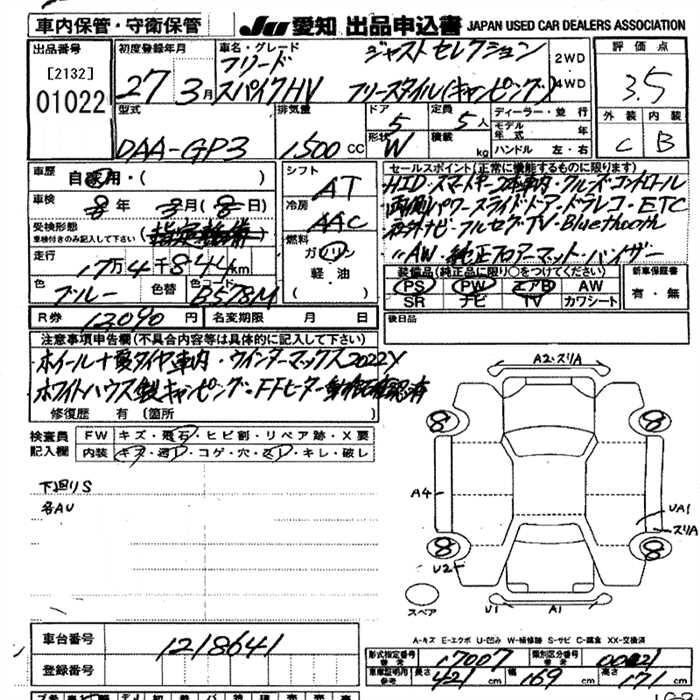 車内保管・守衛保管 JU 愛知 出品申込書 JAPAN USED CAR DEALERS ASSOCIATION
出品番号 初度登録年月 車名・グレード ジャストセレクション 2WD 評価点
[2132] フリード
01022 27 3月 スパイクHV フリースタイル(キャンピング) 4WD 3.5
型式 排気量 ドア 5 定員 5人 ディーラー・並行 外装 内装
モデル年式 年
DAA-GP3 1,500 CC 形状 W 積載 kg ハンドル 左・右 C B
車歴 自家用・( ) シフト AT セールスポイント(正常に機能するものに限ります)
HID・スマートキー2本車内・クルーズコントロール
車検 8年 3月(8日) 冷房 AAC 両側パワースライドドア・ドラレコ・ETC
受検形態 指定整備 社外ナビ・フルセグTV・Bluetooth
車検付きのみ記入して下さい 燃料 〃AW・純正フロアーマット・バイザー
走行 17万4千844km ガソリン 装備品(純正品に限り○をつけてください) 新車保証書
軽・油 PS PW エアB AW 有・無
色 ブルー 色替 色コード B578M SR ナビ TV カワシート
R券 12,090円 名変期限 月 日 後日品
注意事項申告欄(不具合内容等は具体的に記入して下さい)
ホイール十夏タイヤ車内・ウインターマックス2022Y
ホワイトハウス製キャンピング・FFヒーター動作確認済
修復歴 有(箇所 )
検査員 FW キズ・飛石・ヒビ割・リペア跡・X要
記入欄 内装 キズ・汚レ・コゲ・穴・スレ・キレ・破レ
下廻りS
各AU
A2・スリA
8 8
A4 UA1
スリA
8 8
U2
スペア U1 A1
A-キズ E-エクボ U-凹み W-補修跡 S-サビ C-腐食 XX-交換済
車台番号 1218641
形式指定番号 参考 17007 類別区分番号 参考 0021
登録番号 車庫証明用 参考 長さ 421cm 幅 169cm 高さ 171cm